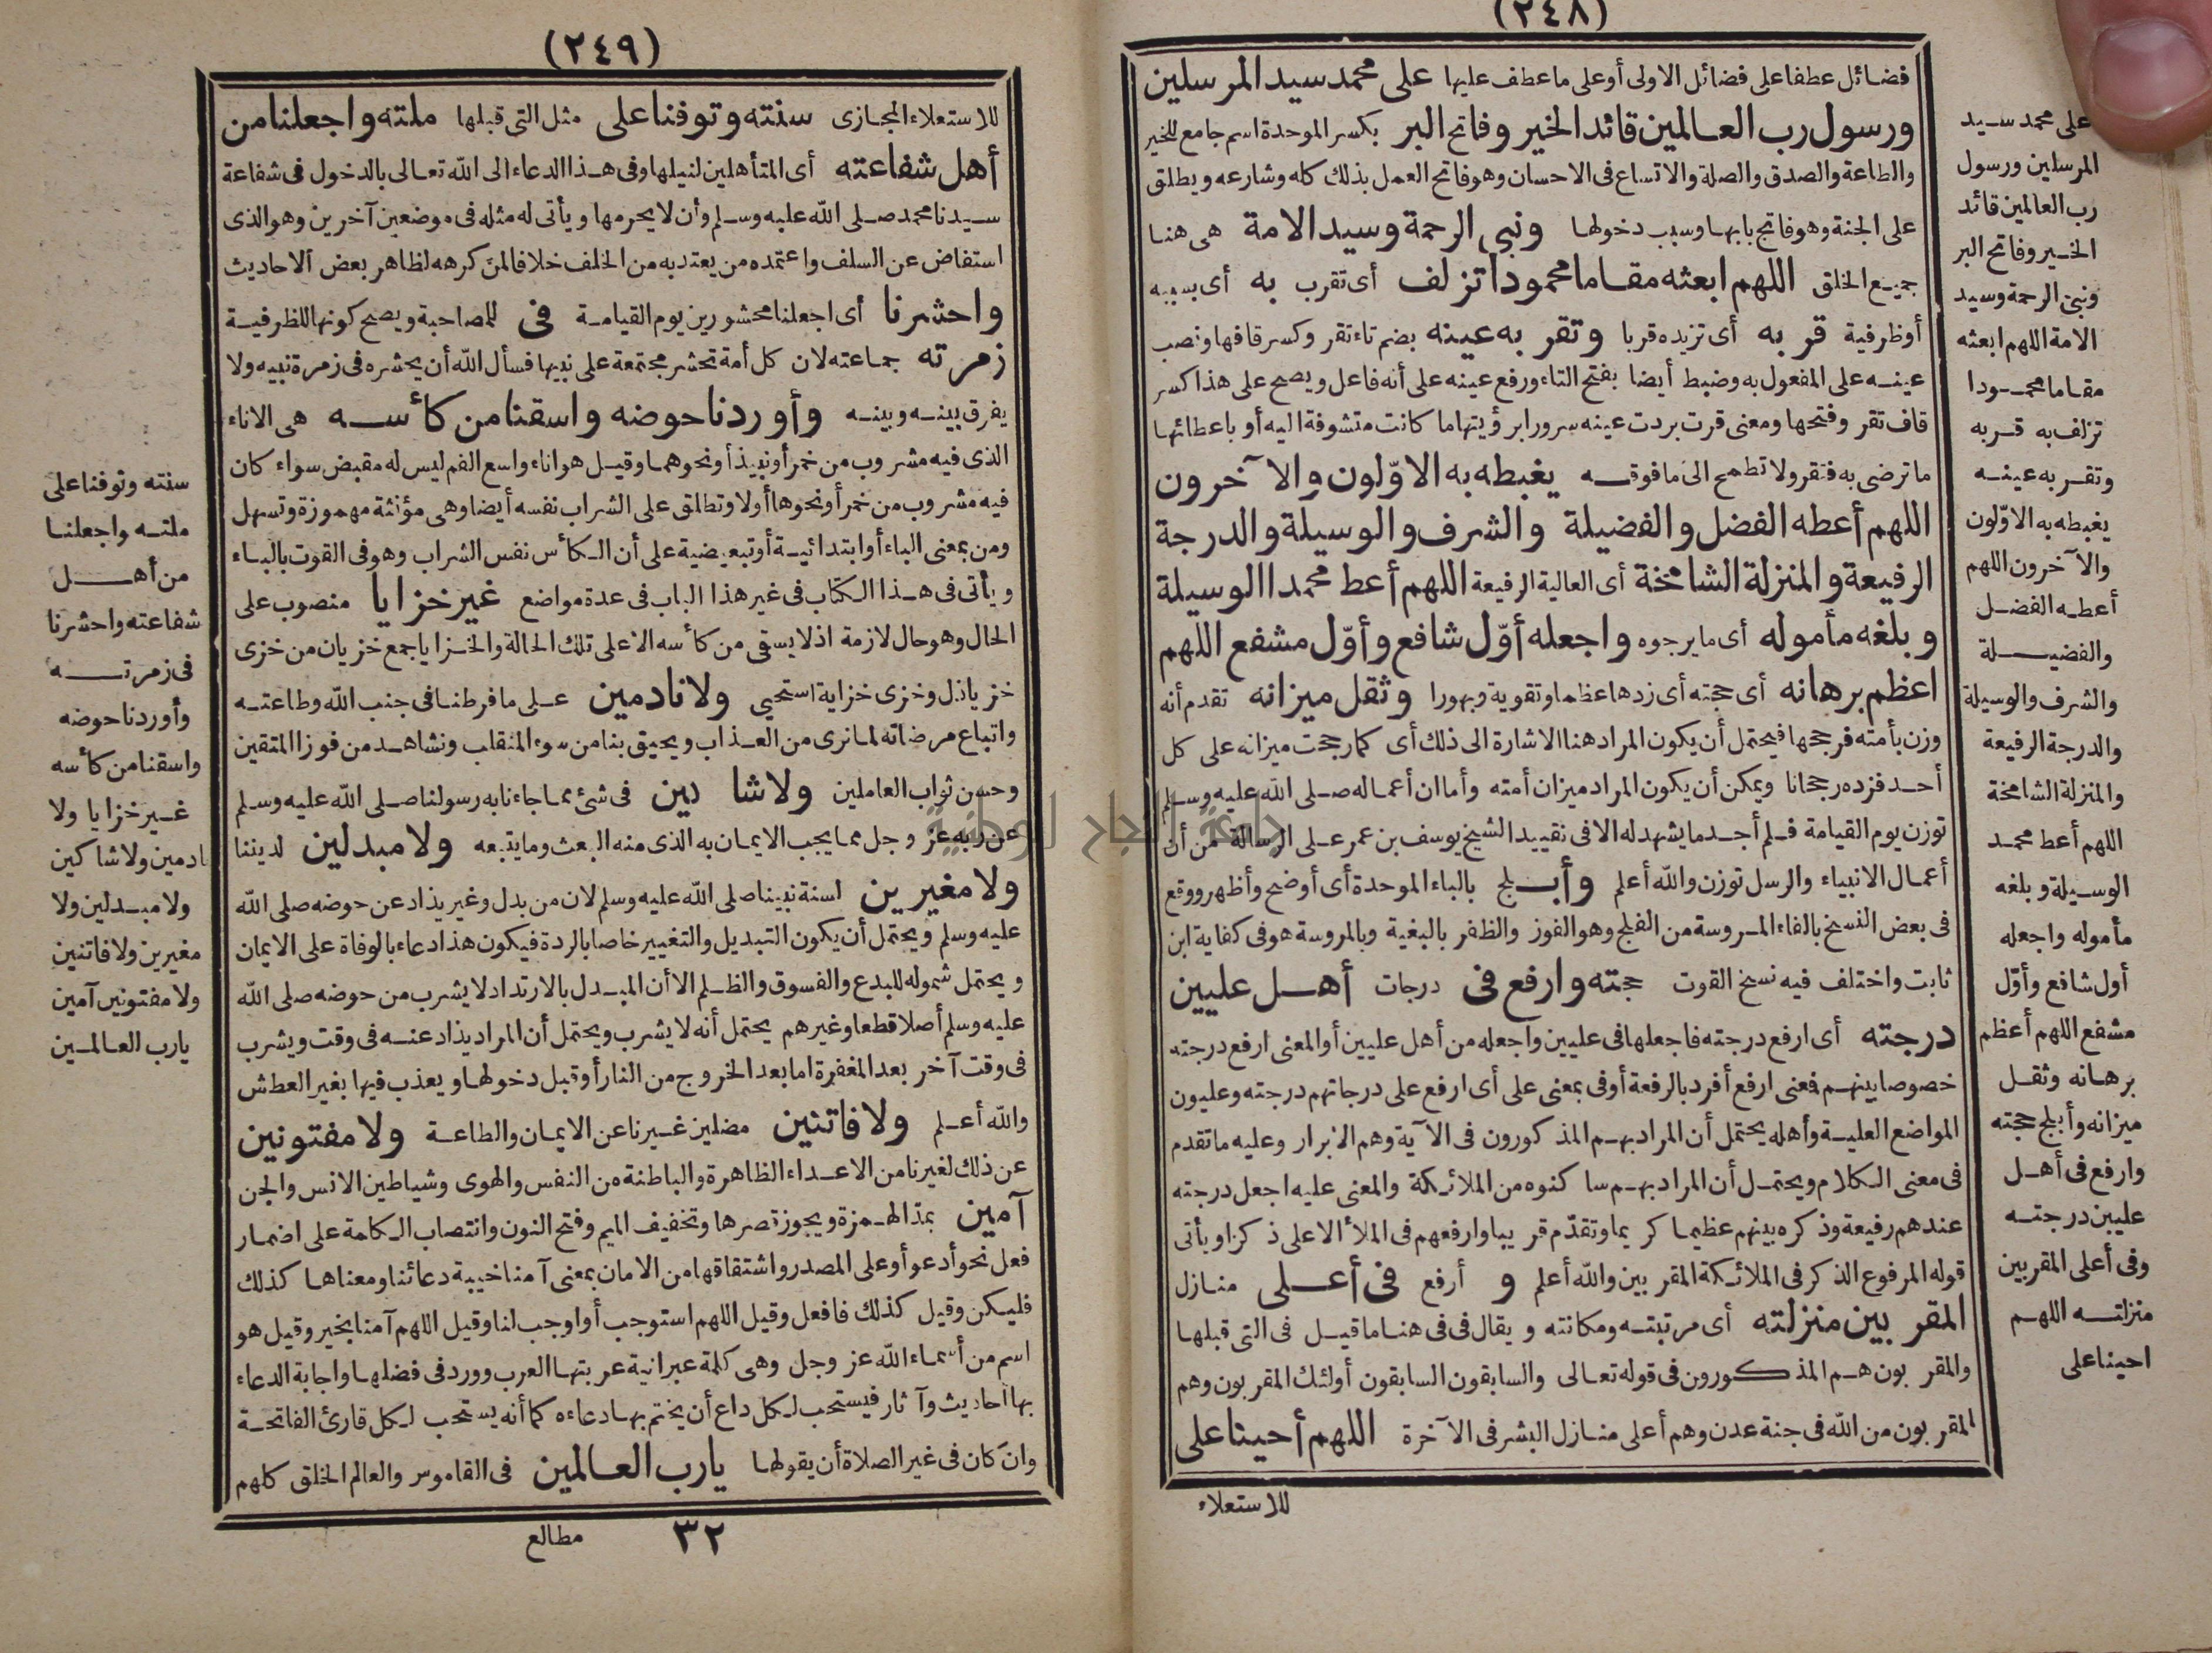 (٢٤٨)
فضائل عطفا على فضائل الاولى أو على ما عطف عليها على محمد سيد المرسلين
ورسول رب العالمين قائد الخير وفاتح البر بكسر الموحدة اسم جامع للخير
والطاعة والصدق والصلة والاتساع فى الاحسان وهو فاتح العمل بذلك كله وشارعه ويطلق
على الجنة وهو فاتح بابها وسبب دخولها ونبى الرحمة وسيد الامة هى هنا
جميع الخلق اللهم ابعثه مقاما محمودا تزلف أى تقرب به أى بسببه
أو ظرفية قربه أى تزيده قربا وتقر به عينه بضم تاء تقر وكسر قافها ونصب
عينه على المفعول به وضبط أيضا بفتح التاء ورفع عينه على أنه فاعل ويصح على هذا كسر
قاف تقر وفتحها ومعنى قرت بردت عينه سرورا برؤيتها ما كانت متشوفة اليه أو باعطائها
ما ترضى به فتقر ولا تطمح الى ما فوقه يغبطه به الاوّلون والآخرون
اللهم أعطه الفضل والفضيلة والشرف والوسيلة والدرجة
الرفيعة والمنزلة الشامخة أى العالية الرفيعة اللهم أعط محمدا الوسيلة
وبلغه مأموله أى ما يرجوه واجعله أوّل شافع وأوّل مشفع اللهم
اعظم برهانه أى حجته أى زدها عظما وتقوية وبهورا وثقل ميزانه تقدم أنه
وزن بأمته فرجحها فيحتمل أن يكون المراد هنا الاشارة الى ذلك أى كما رجحت ميزانه على كل
أحد فزده رجحانا ويمكن أن يكون المراد ميزان أمته وأما ان أعماله صلى الله عليه وسلم
توزن يوم القيامة فلم أجد ما يشهد له الا فى تقييد الشيخ يوسف بن عمر على الرسالة من أن
أعمال الانبياء والرسل توزن والله أعلم وأبلج بالباء الموحدة أى أوضح وأظهر ووقع
فى بعض النسخ بالفاء المروسة من الفلج وهو الفوز والظفر بالبغية وبالمروسة هو فى كفاية ابن
ثابت واختلف فيه نسخ القوت حجته وارفع فى درجات أهل عليين
درجته أى ارفع درجته فاجعلها فى عليين واجعله من أهل عليين أو المعنى ارفع درجته
خصوصا بينهم فمعنى ارفع أفرد بالرفعة أو فى بمعنى على أى ارفع على درجاتهم درجته وعليون
المواضع العلية وأهله يحتمل أن المراد بهم المذكورون فى الآية وهم الابرار وعليه ما تقدم
فى معنى الكلام ويحتمل أن المراد بهم ساكنوه من الملائكة والمعنى عليه اجعل درجته
عندهم رفيعة وذكره بينهم عظيما كريما وتقدّم قريبا وارفعهم فى الملأ الاعلى ذكرا ويأتى
قوله المرفوع الذكر فى الملائكة المقربين والله أعلم و أرفع فى أعلى منازل
المقربين منزلته أى مرتبته ومكانته ويقال فى فى هنا ما قيل فى التى قبلها
والمقربون هم المذكورون فى قوله تعالى والسابقون السابقون أولئك المقربون وهم
المقربون من الله فى جنة عدن وهم أعلى منازل البشر فى الآخرة اللهم أحينا على
للاستعلاء
على محمد سيد
المرسلين ورسول
رب العالمين قائد
الخير وفاتح البر
ونبى الرحمة وسيد
الامة اللهم ابعثه
مقاما محمودا
تزلف به قربه
وتقر به عينه
يغبطه به الاوّلون
والآخرون اللهم
أعطه الفضل
والفضيلة
والشرف والوسيلة
والدرجة الرفيعة
والمنزلة الشامخة
اللهم أعط محمد
الوسيلة وبلغه
مأموله واجعله
أول شافع وأوّل
مشفع اللهم أعظم
برهانه وثقل
ميزانه وأبلج حجته
وارفع فى أهل
عليين درجته
وفى أعلى المقربين
منزلته اللهم
احينا على
(٢٤٩)
للاستعلاء المجازى سنته وتوفنا على مثل التى قبلها ملته واجعلنا من
أهل شفاعته أى المتأهلين لنيلها وفى هذا الدعاء الى الله تعالى بالدخول فى شفاعة
سيدنا محمد صلى الله عليه وسلم وأن لا يحرمها ويأتى له مثله فى موضعين آخرين وهو الذى
استفاض عن السلف واعتمده من يعتد به من الخلف خلافا لمن كرهه لظاهر بعض ألاحاديث
واحشرنا أى اجعلنا محشورين يوم القيامة فى للمصاحبة ويصح كونها للظرفية
زمرته جماعته لان كل أمة تحشر مجتمعة على نبيها فسأل الله أن يحشره فى زمرة نبيه ولا
يفرق بينه وبينه وأوردنا حوضه واسقنا من كأسه هى الاناء
الذى فيه مشروب من خمر أو نبيذ أو نحوهما وقيل هو اناء واسع الفم ليس له مقبض سواء كان
فيه مشروب من خمر أو نحوها أولا وتطلق على الشراب نفسه أيضا وهى مؤنثة مهموزة وتسهل
ومن بمعنى الباء أو ابتدائية أو تبعيضية على أن الكأس نفس الشراب وهو فى القوت بالباء
ويأتى فى هذا الكتاب فى غير هذا الباب فى عدة مواضع غير خزايا منصوب على
الحال وهو حال لازمة اذ لا يسقى من كأسه الا على تلك الحالة والخزايا جمع خزيان من خزى
خزيا ذل وخزى خزاية استحيى ولا نادمين على ما فرطنا فى جنب الله وطاعته
واتباع مرضاته لما نرى من العذاب ويحيق بنا من سوء المنقلب ونشاهد من فوز المتقين
وحسن ثواب العاملين ولا شا كين فى شئ مما جاءنا به رسولنا صلى الله عليه وسلم
عن ربه عز وجل مما يجب الايمان به الذى منه البعث وما يتبعه ولا مبدلين لديننا
ولا مغيرين لسنة نبينا صلى الله عليه وسلم لان من بدل وغير يذاد عن حوضه صلى الله
عليه وسلم ويحتمل أن يكون التبديل والتغيير خاصا بالردة فيكون هذا دعاء بالوفاة على الايمان
ويحتمل شموله للبدع والفسوق والظلم الا أن المبدل بالارتداد لا يشرب من حوضه صلى الله
عليه وسلم أصلا قطعا وغيرهم يحتمل أنه لا يشرب ويحتمل أن المراد يذاد عنه فى وقت ويشرب
فى وقت آخر بعد المغفرة اما بعد الخروج من النار أو قبل دخولها ويعذب فيها بغير العطش
والله أعلم ولا فاتنين مضلين غيرنا عن الايمان والطاعة ولا مفتونين
عن ذلك لغيرنا من الاعداء الظاهرة والباطنة من النفس والهوى وشياطين الانس والجن
آمين بمدّ الهمزة ويجوز قصرها وتخفيف الميم وفتح النون وانتصاب الكلمة على اضمار
فعل نحو أدعو أو على المصدر واشتقاقها من الامان بمعنى آمنا خيبة دعائنا ومعناها كذلك
فليكن وقيل كذلك فافعل وقيل اللهم استوجب أو اوجب لنا وقيل اللهم آمنا بخير وقيل هو
اسم من أسماء الله عز وجل وهى كلمة عبرانية عربتها العرب وورد فى فضلها واجابة الدعاء
بها أحاديث وآثار فيستحب لكل داع أن يختم بها دعاءه كما أنه يستحب لكل قارئ الفاتحة
وان كان فى غير الصلاة أن يقولها يا رب العالمين فى القاموس والعالم الخلق كلهم
٣٢ مطالع
سنته وتوفنا على
ملته واجعلنا
من أهل
شفاعته واحشرنا
فى زمرته
وأوردنا حوضه
واسقنا من كأسه
غير خزايا ولا
نادمين ولا شاكين
ولا مبدلين ولا
مغيرين ولا فاتنين
ولا مفتونين آمين
يا رب العالمين
جامعة النجاح الوطنية